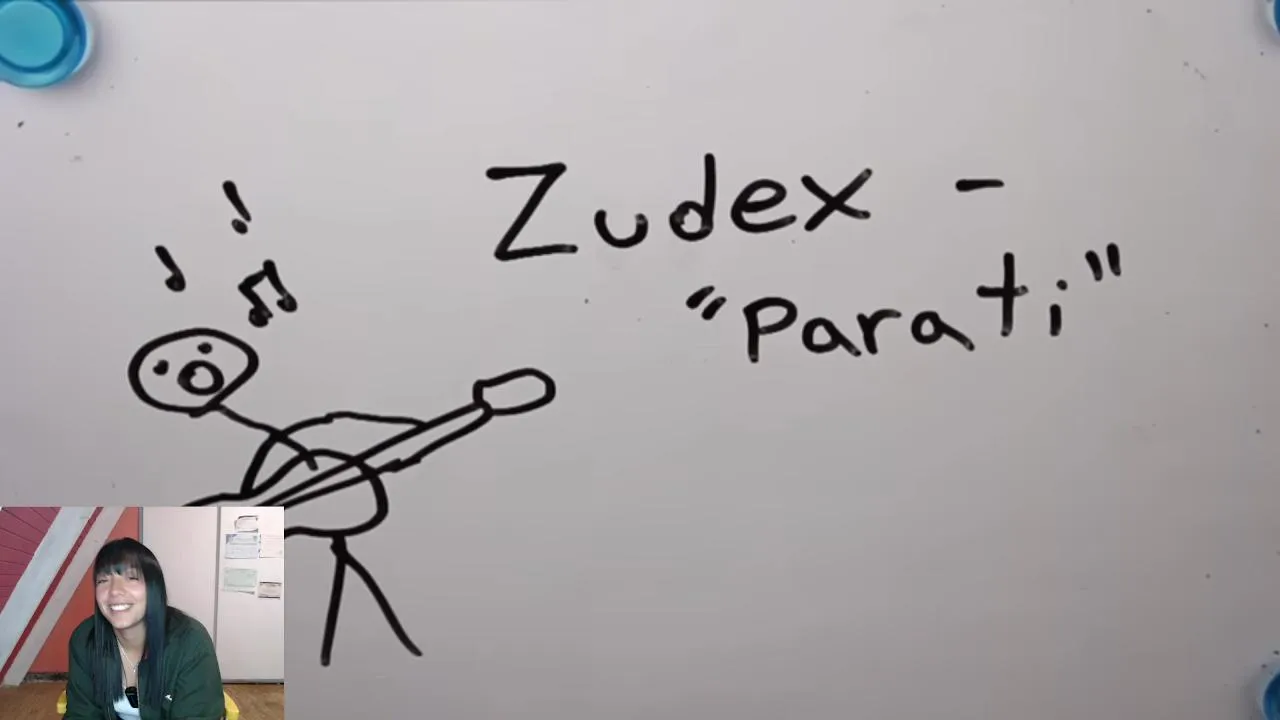 Zudex -
"Parati"